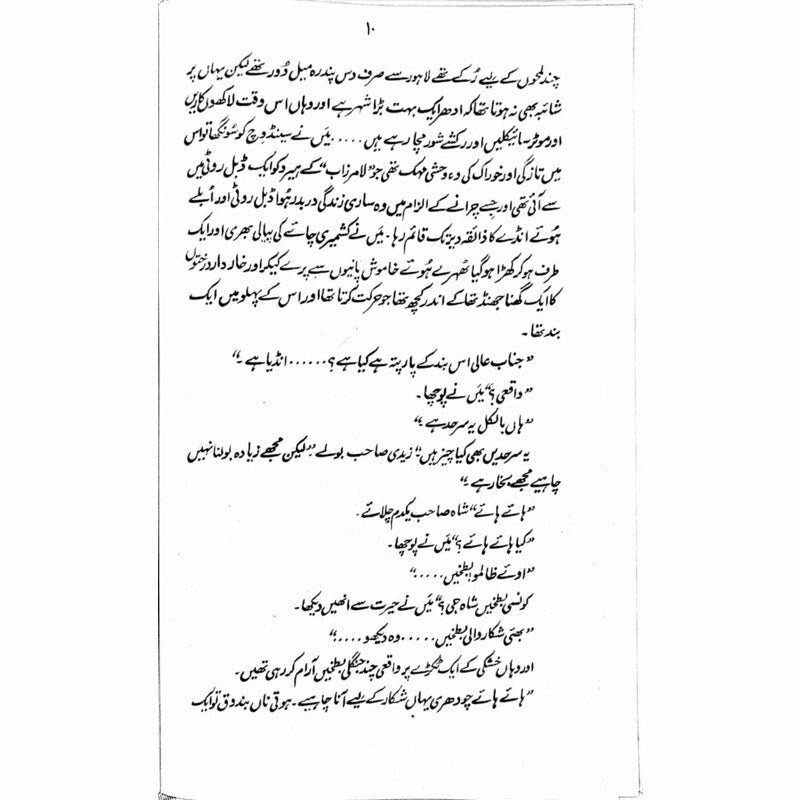 ۱۰
چند لمحوں کے لیے رُکے تھے لاہور سے صرف دس پندرہ میل دُور تھے لیکن یہاں پر
شائبہ بھی نہ ہوتا تھا کہ ادھر ایک بہت بڑا شہر ہے اور وہاں اس وقت لاکھوں کاریں
اور موٹر سائیکلیں اور رکشے شور مچا رہے ہیں ..... میَں نے سینڈوچ کو سُونگھا تو اس
میں تازگی اور خوراک کی وہ وحشی مہک تھی جو "لامزراب" کے ہیرو کو ایک ڈبل روٹی میں
سے آئی تھی اور جِسے چرانے کے الزام میں وہ ساری زندگی دربدر ہُوا ڈبل روٹی اور اُبلے
ہُوئے انڈے کا ذائقہ دیر تک قائم رہا۔ میَں نے کشمیری چائے کی پیالی بھری اور ایک
طرف ہو کر کھڑا ہو گیا ٹھہرے ہُوئے خاموش پانیوں سے پرے کیکر اور خار دار درختوں
کا ایک گھنا جھنڈ تھا کے اندر کچھ تھا جو حرکت کرتا تھا اور اس کے پہلو میں ایک
بند تھا۔
"جناب عالی اس بند کے پار پتہ ہے کیا ہے ؟ ...... انڈیا ہے۔"
"واقعی؟" میَں نے پوچھا۔
"ہاں بالکل یہ سرحد ہے۔"
یہ سرحدیں بھی کیا چیز ہیں" زیدی صاحب بولے "لیکن مجھے زیادہ بولنا نہیں
چاہیے مجھے بخار ہے۔"
"ہائے ہائے" شاہ صاحب یکدم چلائے۔
"کیا ہائے ہائے؟" میَں نے پوچھا۔
"اوئے ظالمو بطخیں ....."
کونسی بطخیں شاہ جی؟" میَں نے حیرت سے انھیں دیکھا۔
"بھئی شکار والی بطخیں ..... وہ دیکھو ....."
اور وہاں خشکی کے ایک ٹکڑے پر واقعی چند جنگلی بطخیں آرام کر رہی تھیں۔
"ہائے ہائے چودھری یہاں شکار کے لیے آنا چاہیے۔ ہوتی ناں بندوق تو ایک